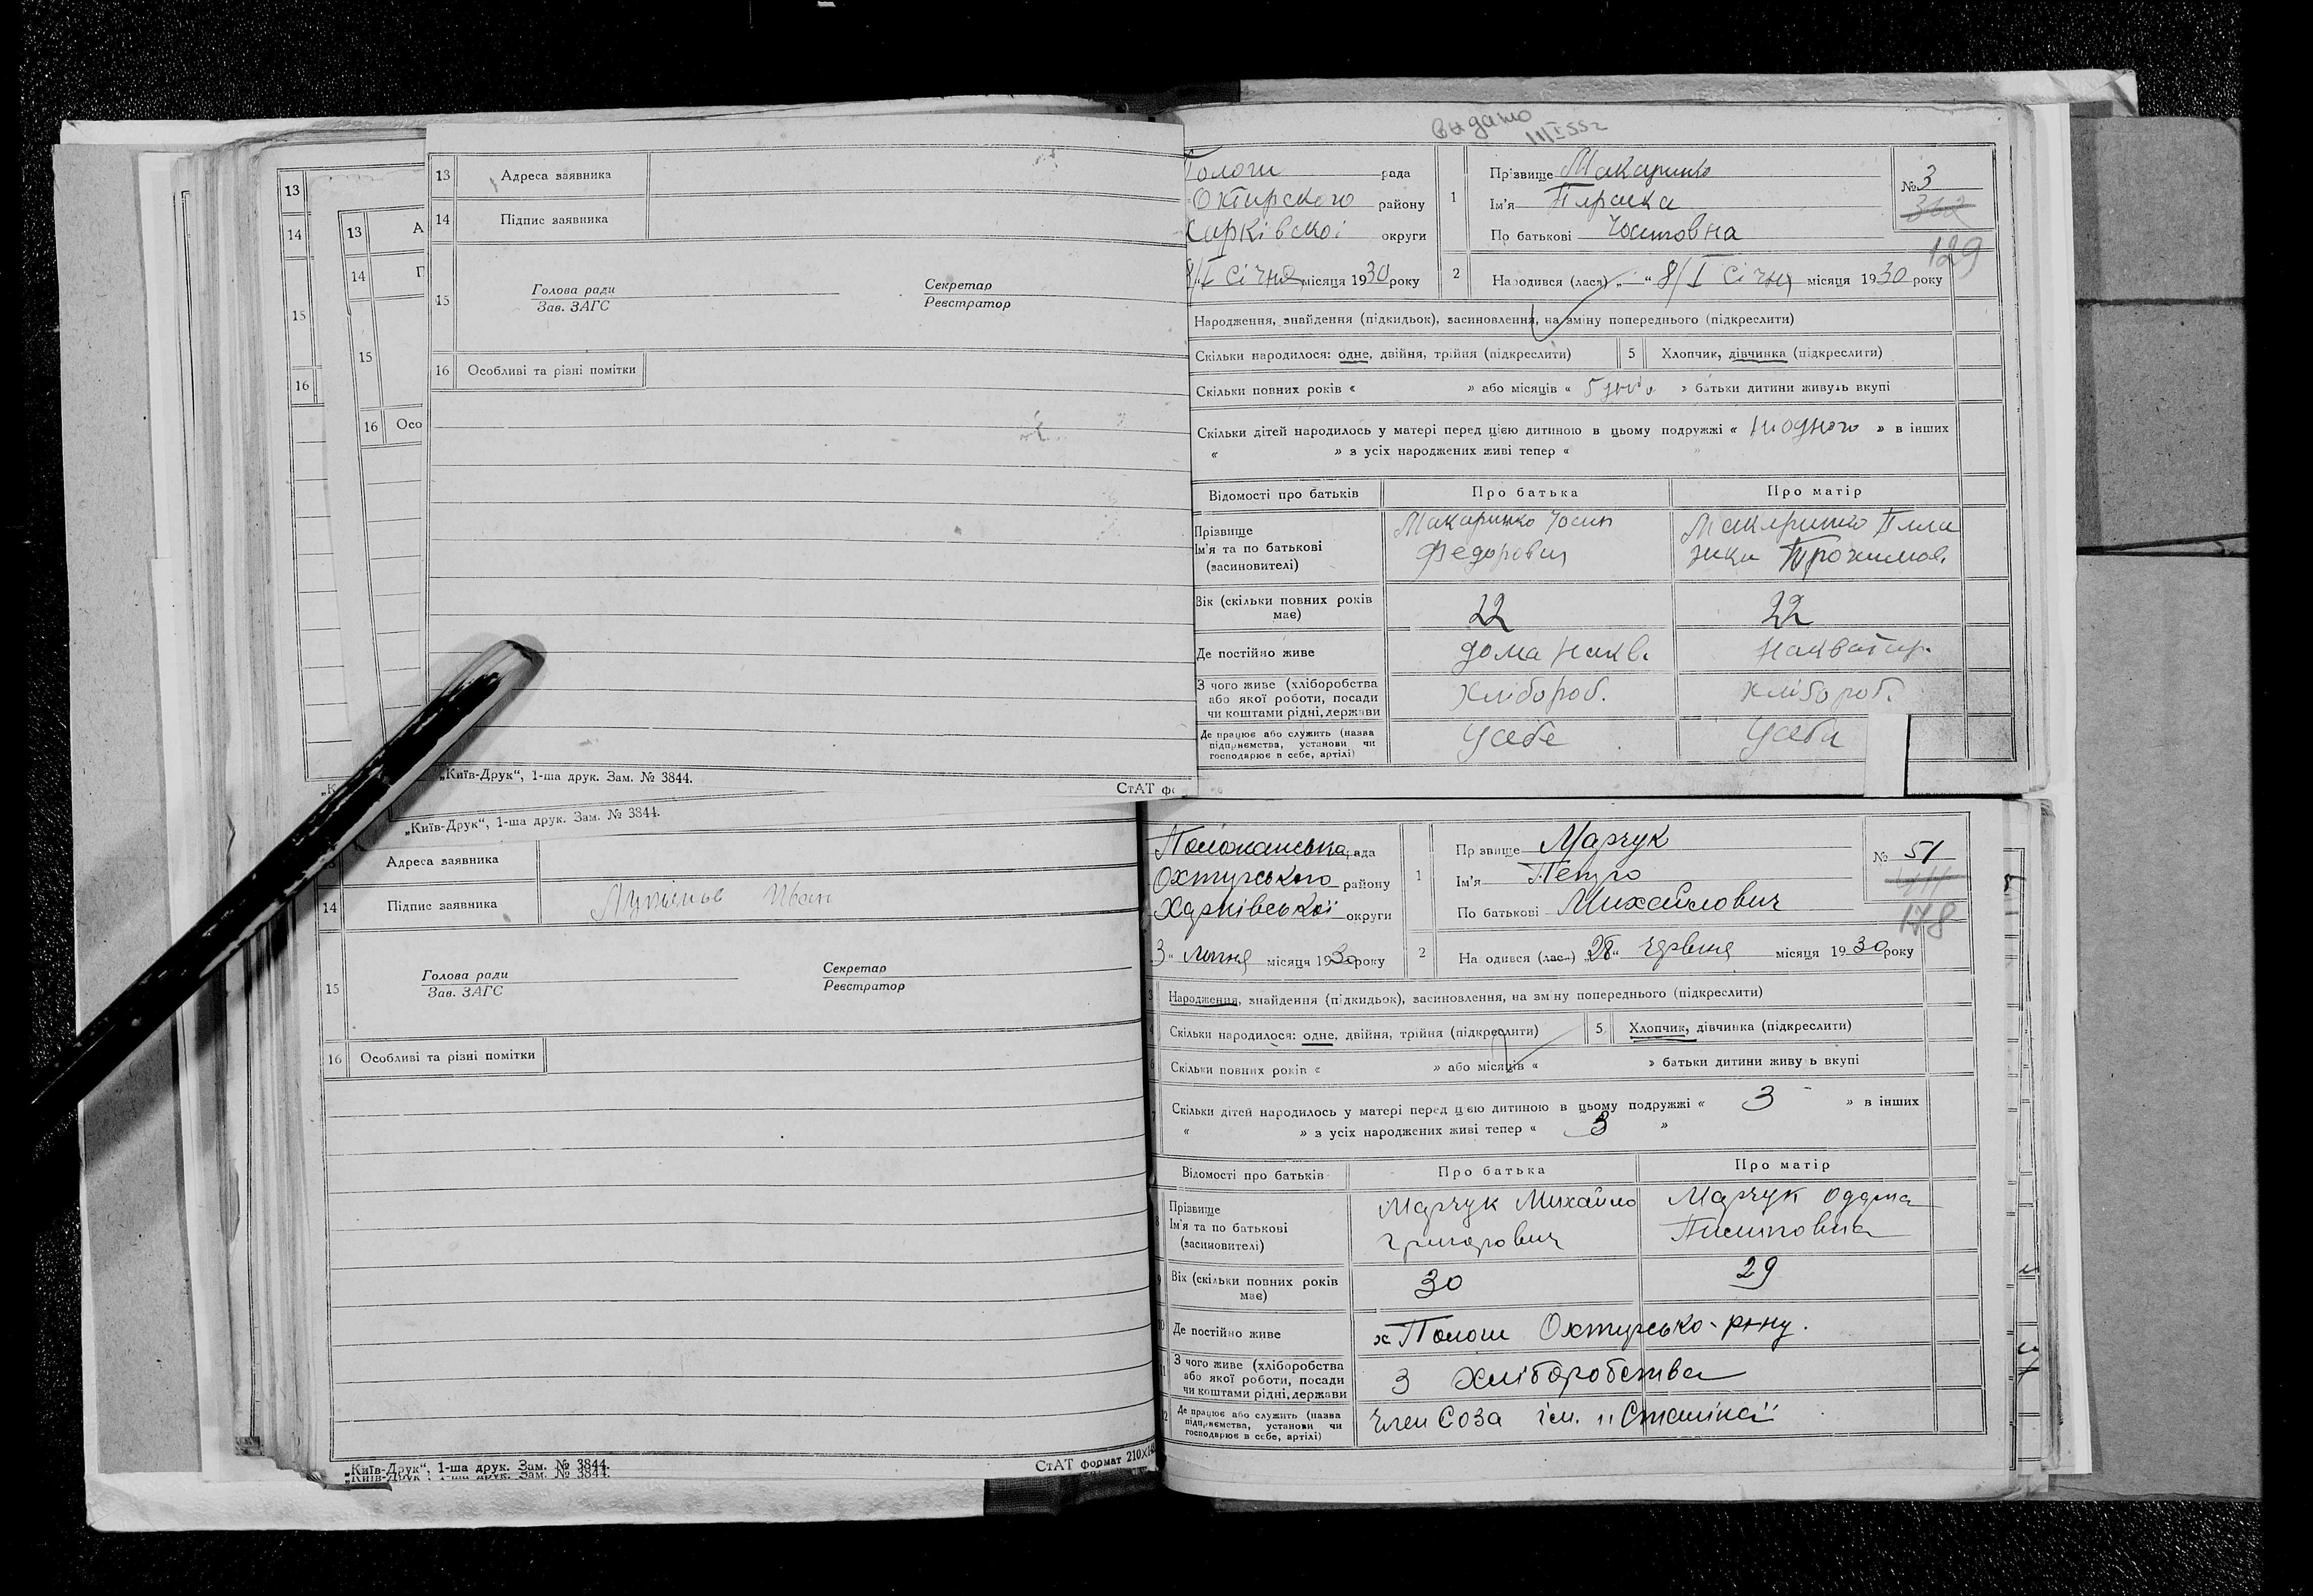 13
14
15
16
13 А
14 П
15
16 Осо
13 Адреса заявника
14 Підпис заявника
15 Голова ради Секретар
Зав. ЗАГС Реєстратор
16 Особливі та різні помітки
„Київ-Друк“, 1-ша друк. Зам. № 3844.
СтАТ фо
видато
Пологи рада
Охтирского району
Харківскої округи
8/I Січня місяця 1930 року
1 Прізвище Макаренко
Ім'я
По батькові
№ 3
129
2 Народився (лася) „ “ 8/I Січня місяця 1930 року
Народження, знайдення (підкидьок), засиновлення, на зміну попереднього (підкреслити)
Скільки народилося: одне, двійня, трійня (підкреслити) 5 Хлопчик, дівчинка (підкреслити)
Скільки повних років « » або місяців « » батьки дитини живуть вкупі
Скільки дітей народилось у матері перед цією дитиною в цьому подружжі « ниодного » в інших
« » з усіх народжених живі тепер « »
Відомості про батьків Про батька Про матір
Прізвище
Ім'я та по батькові
(засиновителі)
Макаренко Йосип
Федорович
Макаренко
Вік (скільки повних років
має)
22 22
Де постійно живе дома
З чого живе (хліборобства
або якої роботи, посади
чи коштами рідні, держави
Хлібороб. хлібороб.
Де працює або служить (назва
підприємства, установи чи
господарює в себе, артілі)
Усебе Усебе
„Київ-Друк“, 1-ша друк. Зам. № 3844.
Адреса заявника
14 Підпис заявника Іван
15 Голова ради Секретар
Зав. ЗАГС Реєстратор
16 Особливі та різні помітки
„Київ-Друк“, 1-ша друк. Зам. № 3844.
СтАТ формат 210×1
Положанська рада
Охтирського району
Харківської округи
3 „ Липня місяця 1930 року
1 Прізвище Марчук
Ім'я Петро
По батькові Михайлович
№ 51
178
2 Народився (лась) „28“ Червня місяця 1930 року
3 Народження, знайдення (підкидьок), засиновлення, на зміну попереднього (підкреслити)
4 Скільки народилося: одне, двійня, трійня (підкреслити) 5 Хлопчик, дівчинка (підкреслити)
6 Скільки повних років « » або місяців « » батьки дитини живуть вкупі
7 Скільки дітей народилось у матері перед цією дитиною в цьому подружжі « 3 » в інших
« » з усіх народжених живі тепер « 3 »
Відомості про батьків Про батька Про матір
8 Прізвище
Ім'я та по батькові
(засиновителі)
Марчук Михайло
Григорович
Марчук Одарка
9 Вік (скільки повних років
має)
30 29
10 Де постійно живе х Пологи Охтирсько-р-ну.
11 З чого живе (хліборобства
або якої роботи, посади
чи коштами рідні, держави
З хліборобства
12 Де працює або служить (назва
підприємства, установи чи
господарює в себе, артілі)
Член Соза ім. „Сталіна“